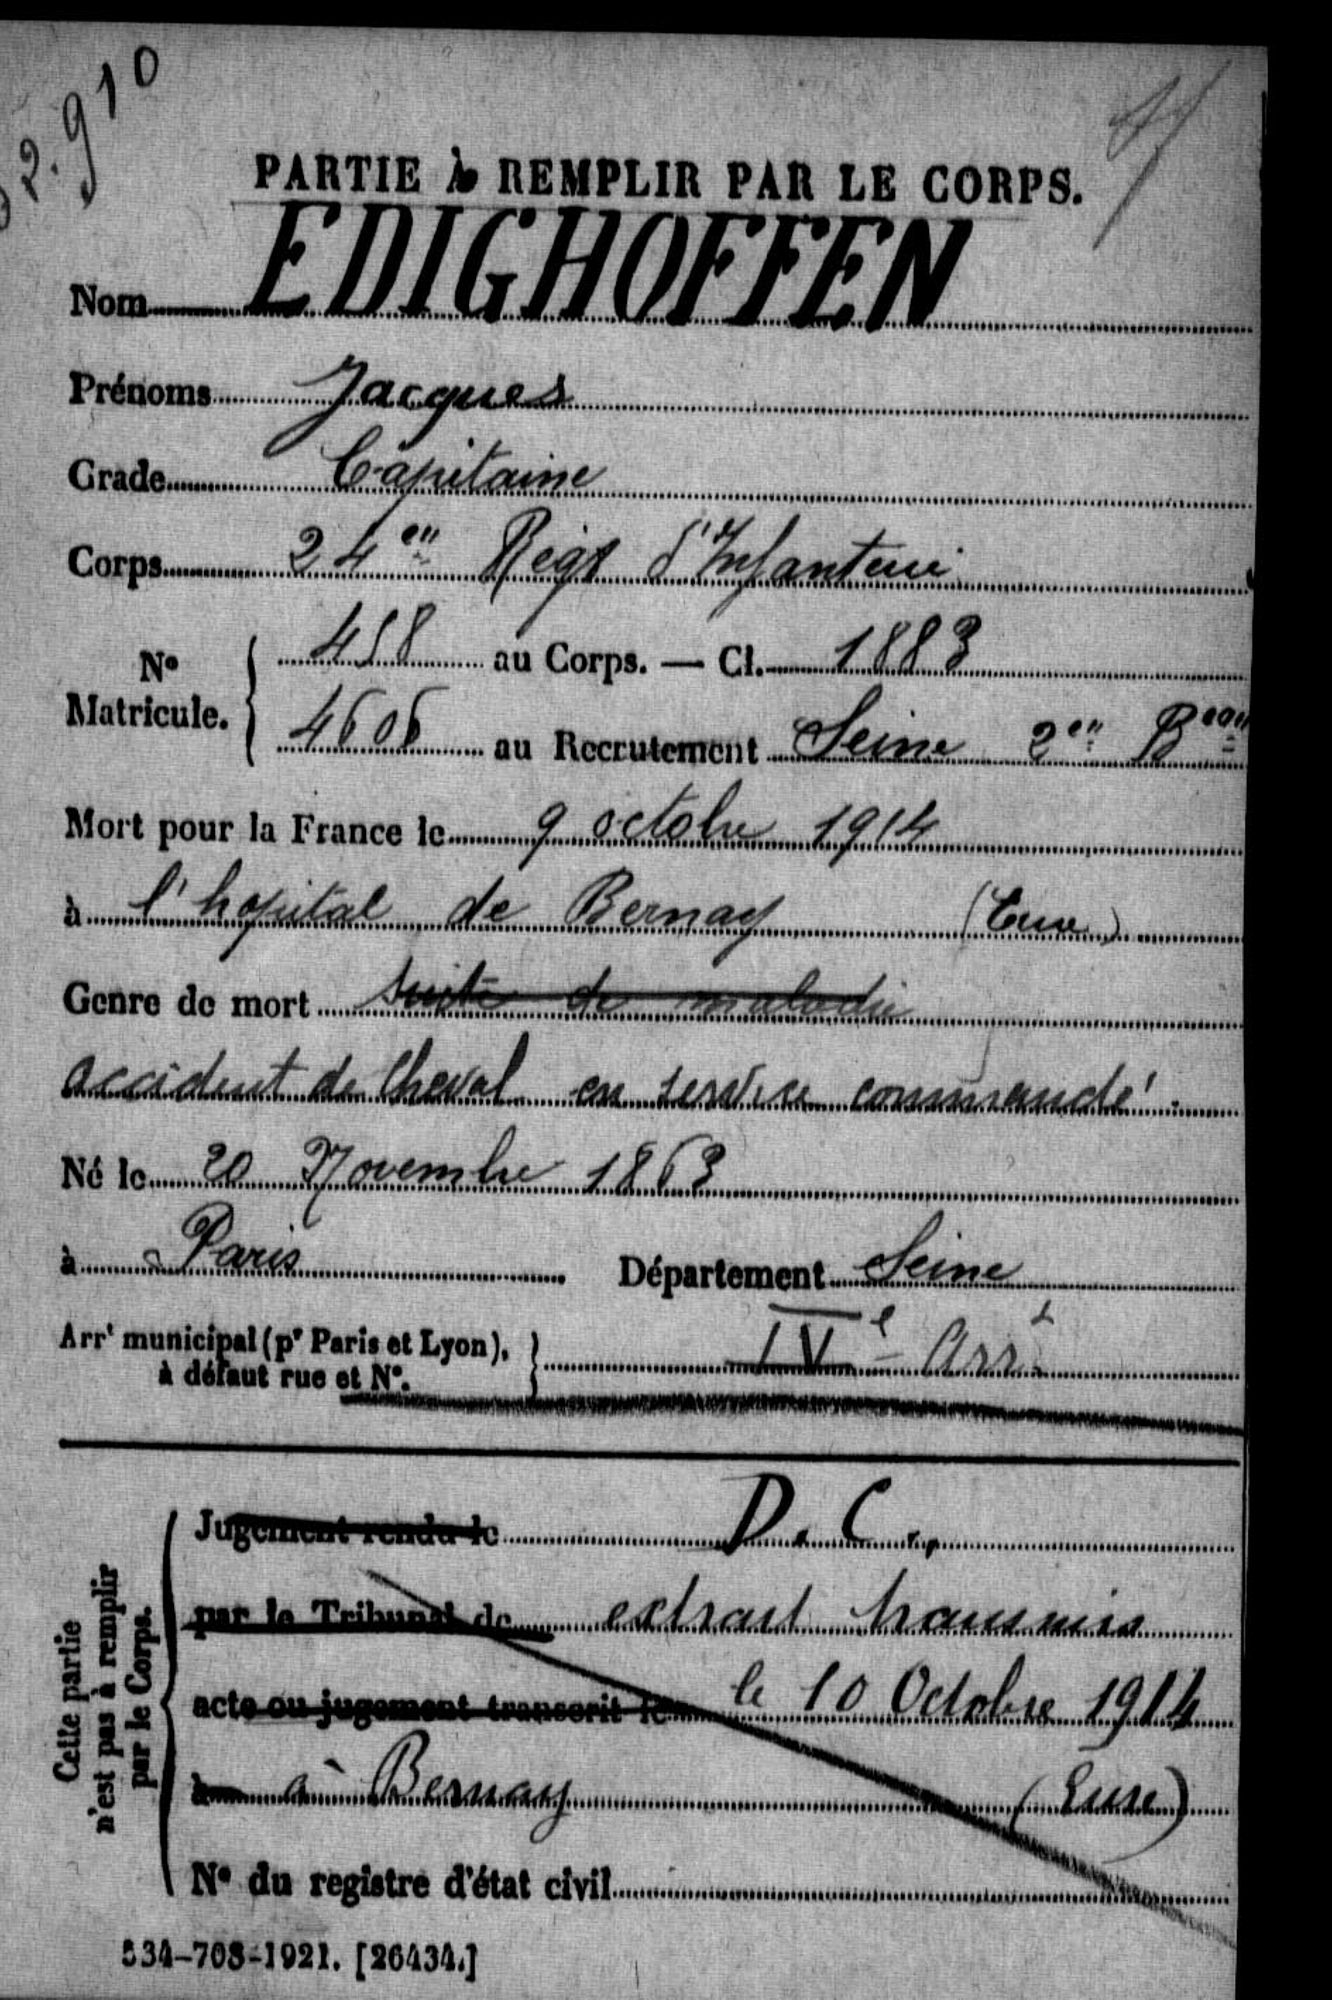 2.910
PARTIE à REMPLIR PAR LE CORPS.
Nom EDIGHOFFEN
Prénoms Jacques
Grade Capitaine
Corps 24em Régt d'Infanterie
No Matricule. 458 au Corps. — Cl. 1883
4606 au Recrutement Seine 2em Beau
Mort pour la France le 9 octobre 1914
à l'hopital de Bernay (Eure)
Genre de mort suite de maladie
accident de cheval en service commandé.
Né le 20 Novembre 1863
à Paris Département Seine
Arrt municipal (pr Paris et Lyon), à défaut rue et No. IVe Arrt
Cette partie n'est pas à remplir par le Corps.
Jugement rendu le D. C.
par le Tribunal de extrait transmis
acte ou jugement transcrit le le 10 Octobre 1914
à à Bernay (Eure)
No du registre d'état civil
534-708-1921. [26434.]